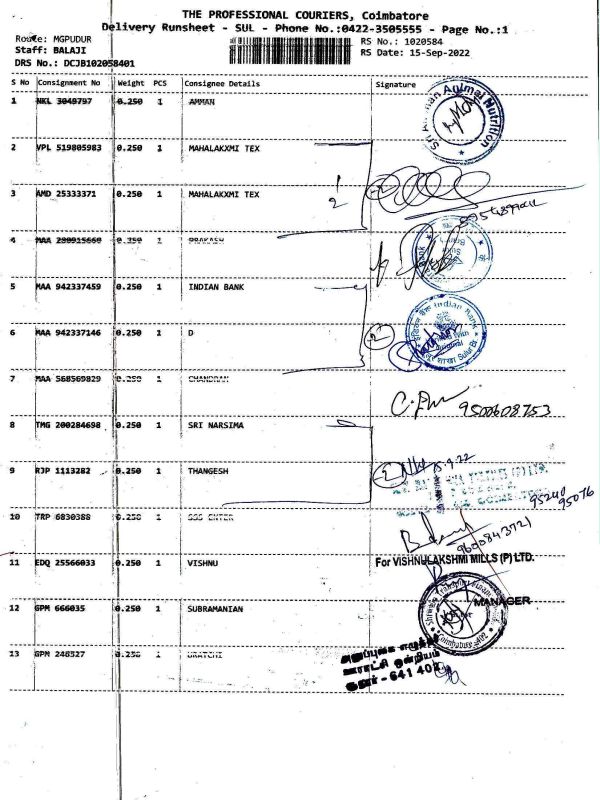 THE PROFESSIONAL COURIERS, Coimbatore
Delivery Runsheet - SUL - Phone No.:0422-3505555 - Page No.:1
Route: MGPUDUR
RS No.: 1020584
Staff: BALAJI
RS Date: 15-Sep-2022
DRS No.: DCJB102058401
S No Consignment No Weight PCS Consignee Details Signature
1 NKL 3049797 0.250 1 AMMAN
Animal Nutrition
2 VPL 519805983 0.250 1 MAHALAKXMI TEX
3 AMD 25333371 0.250 1 MAHALAKXMI TEX
1/2
4 MAA 0.350 1 PRAKASH
5 MAA 942337459 0.250 1 INDIAN BANK
Indian Bank
6 MAA 942337146 0.250 1 D
2
7 MAA 568569829 0.250 1 CHANDRAN
9500608753
8 TMG 200284698 0.250 1 SRI NARSIMA
9 RJP 1113282 0.250 1 THANGESH
2
95240
95076
10 TRP 6830388 0.250 1 SSS ENTER
9600843721
11 EDQ 25566033 0.250 1 VISHNU
For VISHNULAKSHMI MILLS (P) LTD.
MANAGER
12 GPM 666035 0.250 1 SUBRAMANIAN
13 GPM 248527 0.250 1
ஊராட்சி ஒன்றியம்